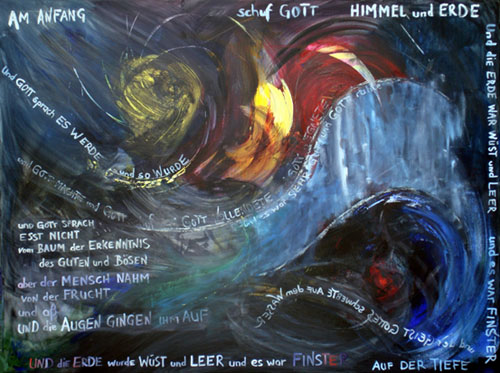 AM ANFANG schuf GOTT HIMMEL und ERDE
Und die ERDE WAR WÜST und LEER und es war FINSTER
AUF DER TIEFE
und der GEIST GOTTES schwebte AUF dem WASSER
Und GOTT sprach ES WERDE und so WURDE
und GOTT MACHTE und GOTT
GOTT
und GOTT SPRACH
ESST NICHT
vom BAUM der ERKENNTNIS
des GUTEN und BÖSEN
aber der MENSCH NAHM
von der FRUCHT
und aß
UND die AUGEN GINGEN ihm AUF
UND die ERDE wurde WÜST und LEER und es war FINSTER